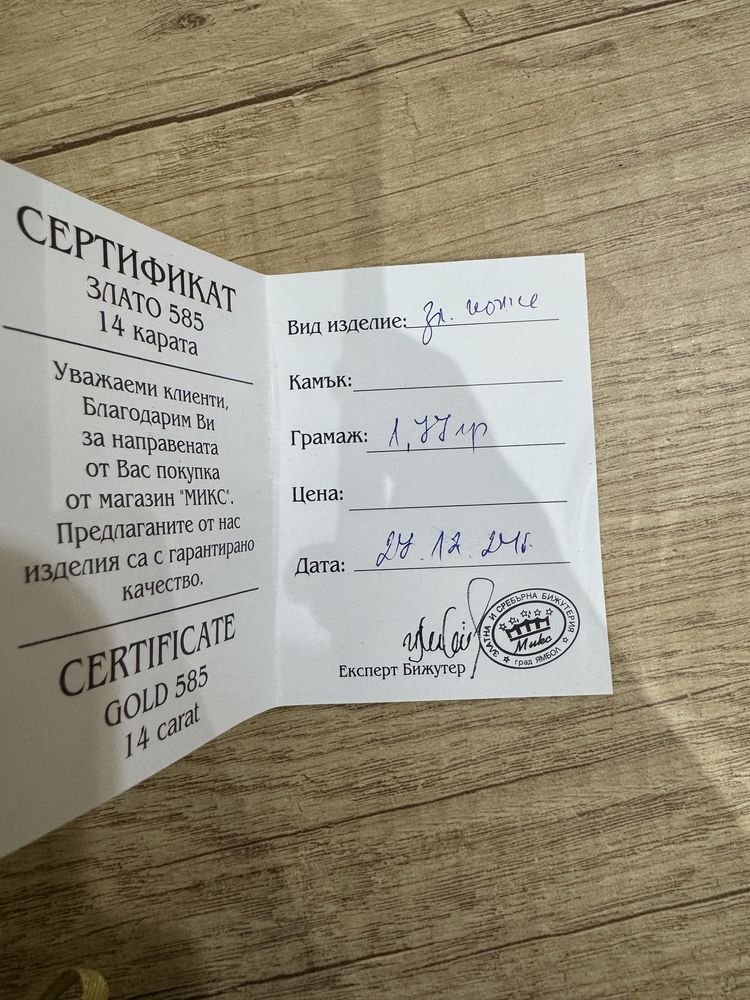 СЕРТИФИКАТ
ЗЛАТО 585
14 карата
Уважаеми клиенти,
Благодарим Ви
за направената
от Вас покупка
от магазин "МИКС".
Предлаганите от нас
изделия са с гарантирано
качество.
CERTIFICATE
GOLD 585
14 carat
Вид изделие: зл. колие
Камък:
Грамаж: 1,77 гр
Цена:
Дата: 27.12.24г.
Експерт Бижутер
ЗЛАТНА И СРЕБЪРНА БИЖУТЕРИЯ
Микс
град ЯМБОЛ